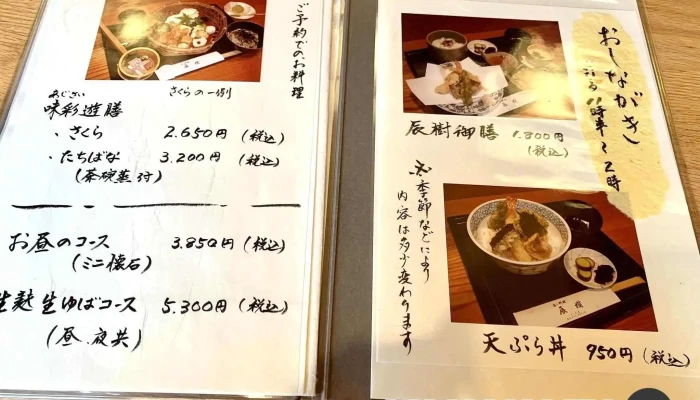 おしながき
11時半〜2時
辰樹御膳 1.800円
(税込)
季節などにより
内容は多少変わります
天ぷら丼 950円 (税込)
ご予約でのお料理
さくらの一例
あじさい
味彩遊膳
・さくら 2.650円 (税込)
・たちばな 3.200円 (税込)
(茶碗蒸付)
お昼のコース 3.850円 (税込)
(ミニ懐石)
生麩生ゆばコース 5.300円 (税込)
(昼.夜共)